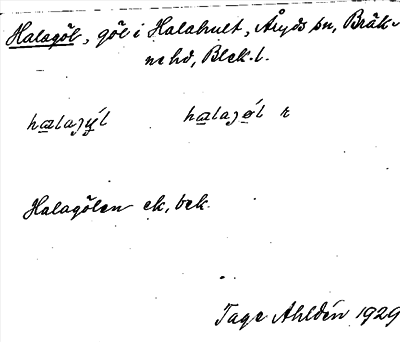 Halagöl, göl i Halahult, Åryds sn, Bräk-
ne hd, Blek. l.
halagý̨l halagǿl r
Halagölen ek, bek.
Tage Ahldén 1929